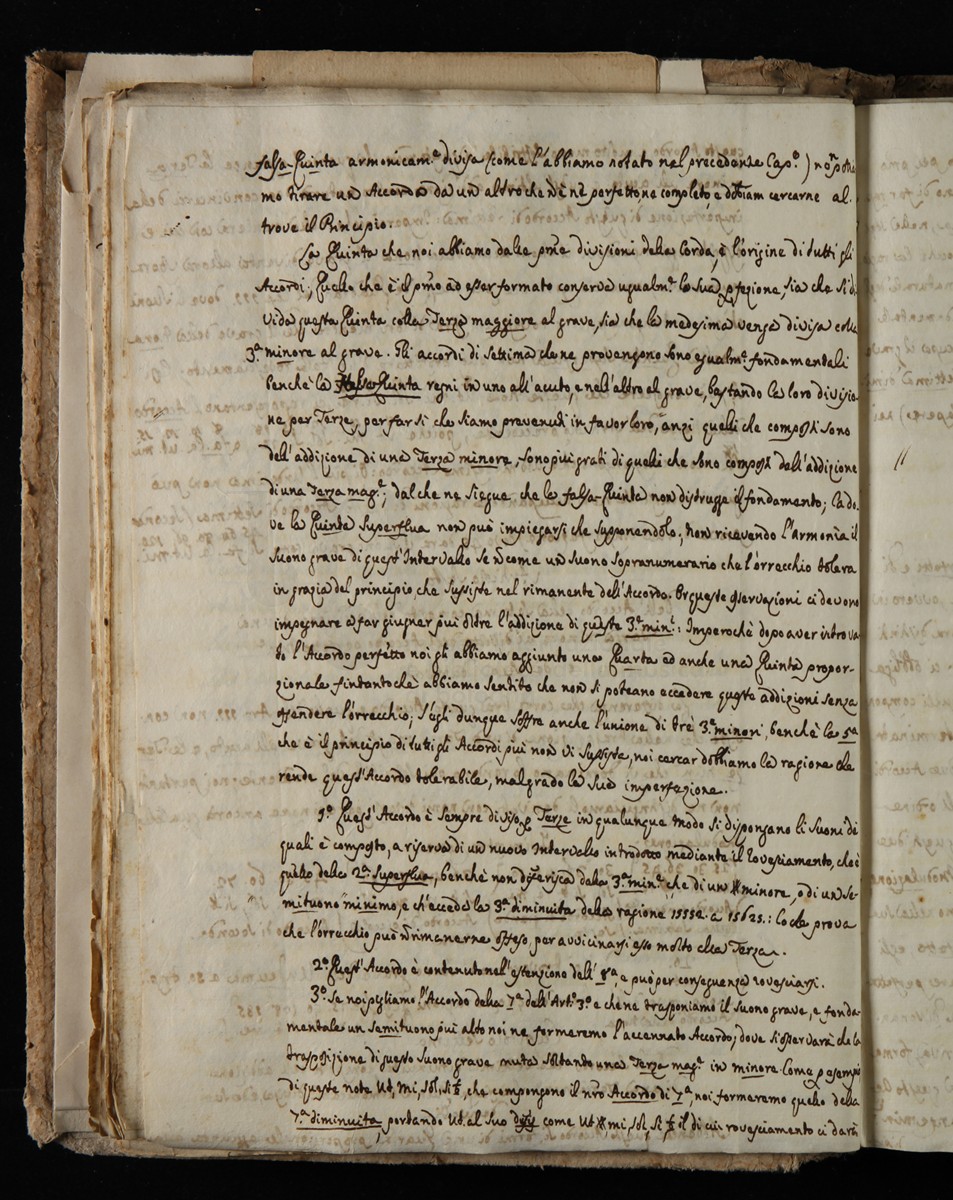 falsa-Quinta armonicam.e divisa (come l'abbiamo notato nel precedente Cap.o) non pos
mo tirare un Accordo da un altro che nè perfetto, ne completo, e dobbiam cercarne al-
trove il Principio.
La Quinta che noi abbiamo dalle prme divisioni della Corda, è l'origine di tutti gli
Accordi; Quello che è il prmo ad esser formato conserva ugualm.e la sua pfezione, sia che si di
vida questa Quinta colla Terza maggiore al grave, sia che la medesima venga divisa colla
3.a minore al grave. Gli accordi di settima che ne provengono sono egualm.e fondamentali
benchè la falsa Quinta regni in uno all'acuto, e nell'altro al grave, bastando la loro divisio
ne per Terze, per far sì che siamo prevenuti in favor loro, anzi quelli che composti sono
dell'addizione di una Terza minore, sono piu grati di quelli che sono composti dall'addizione
di una Terza mag.e; dal che ne siegue che la falsa-Quinta non distrugge il fondamento; la do-
ve la Quinta superflua non può impiegarsi che supponendolo, non ricavendo l'Armonia il
suono grave di quest'Intervallo se non come un suono sopranumerario che l'orrecchio tolera
in grazia del principio, che sussiste nel rimanente dell'Accordo. Or queste osservazioni ci devono
impegnare a far giugner piu oltre l'addizione di queste 3.e min.i: Imperochè dopo aver introva
to l'Accordo perfetto noi gli abbiamo aggiunto una Quarta ed anche una Quinta propor-
zionale fintantochè abbiamo sentito che non si poteano eccedere queste addizioni senza
offendere l'orrecchio; s'egli dunque soffre anche l'unione di trè 3.e minori, benchè la 5.a
che è il principio di tutti gli Accordi piu non vi sussista, noi cercar dobbiamo la ragione che
rende quest'Accordo tolerabile, malgrado la sua imperfezione.
1.o Quest'Accordo è sempre diviso p Terze in qualunque modo si dispongano li suoni di
quali è composto, a riserva di un nuovo Intervallo introdotto mediante il rovesciamento, cioè
quello della 2.a superflua, benchè non differisca dalla 3.a min.e che di un # minore, o di un se-
mituono minimo, e ch'ecceda la 3.a diminuita della ragione 15552. a 15625.: locchè prova
che l'orrecchio può non rimanerne offeso, per avvicinarsi esso molto alla Terza.
2.o Quest'Accordo è contenuto nell'estenzione dell'8.a, e può per conseguenza rovesciarsi.
3.o Se noi pigliamo l'Accordo della 7.a dell'Art.o 3.o e che ne trasponiamo il suono grave, e fonda-
mentale un semituono piu alto noi ne formeremo l'accennato Accordo; dove si osservarà che la
trasposizione di questo suono grave muta soltanto una Terza mag.e in minore. Come p esempio
di queste note Ut, mi, sol, si b, che compongono il nro Accordo di 7.a, noi formeremo quello della
7.a diminuita, portando Ut. al suo come Ut # mi, sol, si b il di cui rovesciamento ci darà